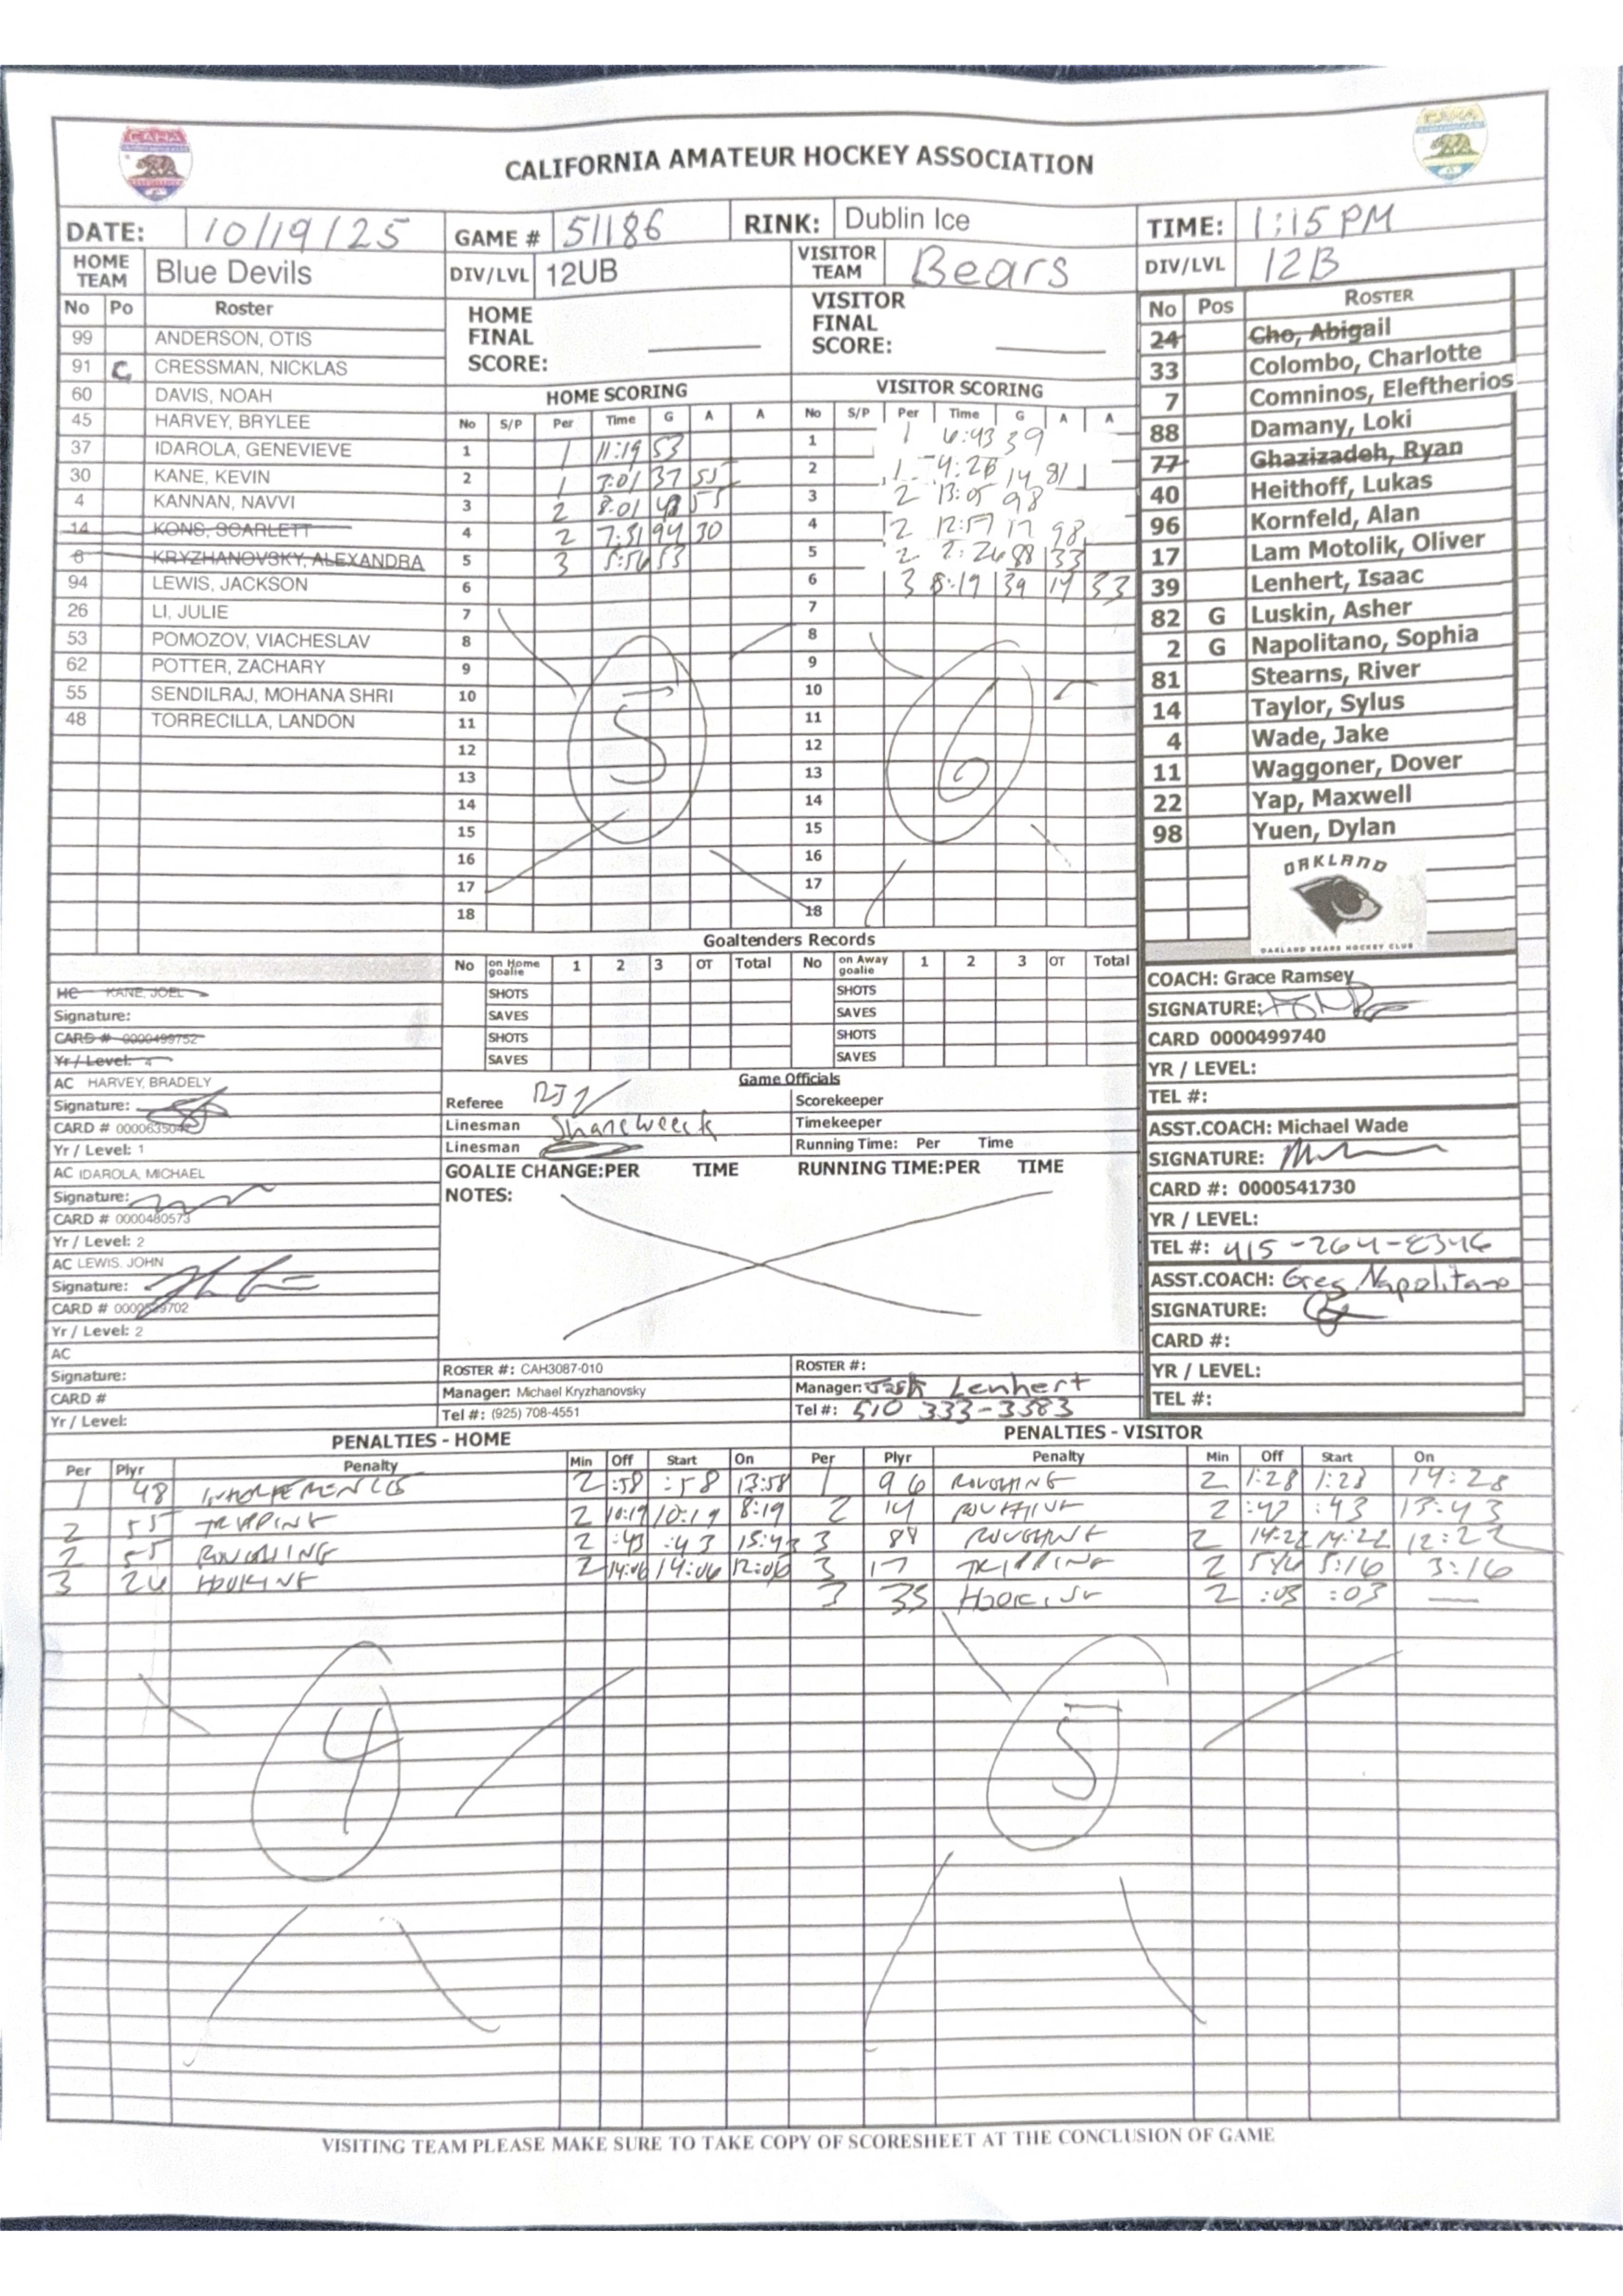 CALIFORNIA AMATEUR HOCKEY ASSOCIATION
DATE: 10/19/25 GAME # 51186 RINK: Dublin Ice TIME: 1:15 PM
HOME TEAM Blue Devils DIV/LVL 12UB VISITOR TEAM Bears DIV/LVL 12B
No Po Roster
99 ANDERSON, OTIS
91 C CRESSMAN, NICKLAS
60 DAVIS, NOAH
45 HARVEY, BRYLEE
37 IDAROLA, GENEVIEVE
30 KANE, KEVIN
4 KANNAN, NAVVI
14 KONS, SCARLETT
6 KRYZHANOVSKY, ALEXANDRA
94 LEWIS, JACKSON
26 LI, JULIE
53 POMOZOV, VIACHESLAV
62 POTTER, ZACHARY
55 SENDILRAJ, MOHANA SHRI
48 TORRECILLA, LANDON
HOME FINAL SCORE:
VISITOR FINAL SCORE:
HOME SCORING
No S/P Per Time G A A
1 1 11:19 53
2 1 7:01 37 55
3 2 8:01 48 55
4 2 7:31 94 30
5 3 5:56 53
6
7
8
9
10
11
12
13
14
15
16
17
18
5
VISITOR SCORING
No S/P Per Time G A A
1 1 6:43 39
2 1 4:26 14 81
3 2 13:05 98
4 2 12:57 17 98
5 2 2:26 88 33
6 3 8:19 39 17 33
7
8
9
10
11
12
13
14
15
16
17
18
6
No Pos ROSTER
24 Cho, Abigail
33 Colombo, Charlotte
7 Comninos, Eleftherios
88 Damany, Loki
77 Ghazizadeh, Ryan
40 Heithoff, Lukas
96 Kornfeld, Alan
17 Lam Motolik, Oliver
39 Lenhert, Isaac
82 G Luskin, Asher
2 G Napolitano, Sophia
81 Stearns, River
14 Taylor, Sylus
4 Wade, Jake
11 Waggoner, Dover
22 Yap, Maxwell
98 Yuen, Dylan
OAKLAND
OAKLAND BEARS HOCKEY CLUB
Goaltenders Records
No on Home goalie 1 2 3 OT Total No on Away goalie 1 2 3 OT Total
SHOTS SHOTS
SAVES SAVES
SHOTS SHOTS
SAVES SAVES
HC KANE, JOEL
Signature:
CARD # 0000499752
Yr / Level: 4
AC HARVEY, BRADELY
Signature:
CARD #
Yr / Level: 1
AC IDAROLA, MICHAEL
Signature:
CARD # 0000480573
Yr / Level: 2
AC LEWIS, JOHN
Signature:
CARD #
Yr / Level: 2
AC
Signature:
CARD #
Yr / Level:
Game Officials
Referee Scorekeeper
Linesman Timekeeper
Linesman Running Time: Per Time
GOALIE CHANGE:PER TIME RUNNING TIME:PER TIME
NOTES:
ROSTER #: CAH3087-010 ROSTER #:
Manager: Michael Kryzhanovsky Manager: Josh Lenhert
Tel #: (925) 708-4551 Tel #: 510 333-3383
COACH: Grace Ramsey
SIGNATURE:
CARD 0000499740
YR / LEVEL:
TEL #:
ASST.COACH: Michael Wade
SIGNATURE:
CARD #: 0000541730
YR / LEVEL:
TEL #: 415-264-8346
ASST.COACH: Greg Napolitano
SIGNATURE:
CARD #:
YR / LEVEL:
TEL #:
PENALTIES - HOME
Per Plyr Penalty Min Off Start On
1 48 INTERFERENCE 2 :58 :58 13:58
2 55 TRIPPING 2 10:19 10:19 8:19
2 55 ROUGHING 2 :43 :43 15:43
3 26 HOOKING 2 14:06 14:06 12:06
4
PENALTIES - VISITOR
Per Plyr Penalty Min Off Start On
1 96 ROUGHING 2 1:28 1:28 14:28
2 14 ROUGHING 2 :43 :43 13:43
3 88 ROUGHING 2 14:22 14:22 12:22
3 17 TRIPPING 2 5:16 5:16 3:16
3 33 HOOKING 2 :03 :03 —
5
VISITING TEAM PLEASE MAKE SURE TO TAKE COPY OF SCORESHEET AT THE CONCLUSION OF GAME